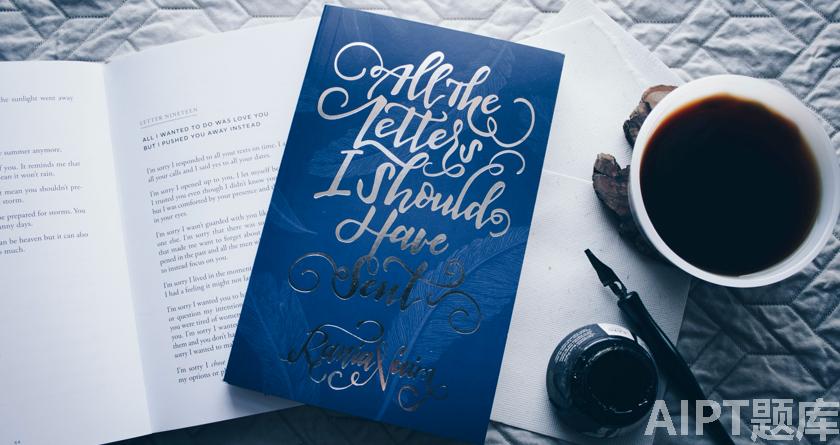 the sunlight went away
summer anymore.
f you. It reminds me that
ean it won't rain.
t mean you shouldn't pre-
storm.
be prepared for storms. You
unny days.
an be heaven but it can also
s much.
64
LETTER NINETEEN
ALL I WANTED TO DO WAS LOVE YOU
BUT I PUSHED YOU AWAY INSTEAD
I'm sorry I responded to all your texts on time. I a
all your calls and I said yes to all your dates.
I'm sorry I opened up to you, I let myself be
I trusted you even though I didn't know you
but I was comforted by your presence and th
in your eyes.
I'm sorry I wasn't guarded with you like
one else. I'm sorry that there was so
that made me want to forget about
pened in the past and all the men w
to instead focus on you.
I'm sorry I lived in the moment
I had a feeling it might not la
I'm sorry I wanted you to h
or question my intention
you were tired of wome
you. I'm sorry I wante
them and you don't ha
sorry I wanted to ma
I'm sorry I chose
my options or p
All The
Letters
I Should
Have
Sent
Rania Naim
AIPT题库